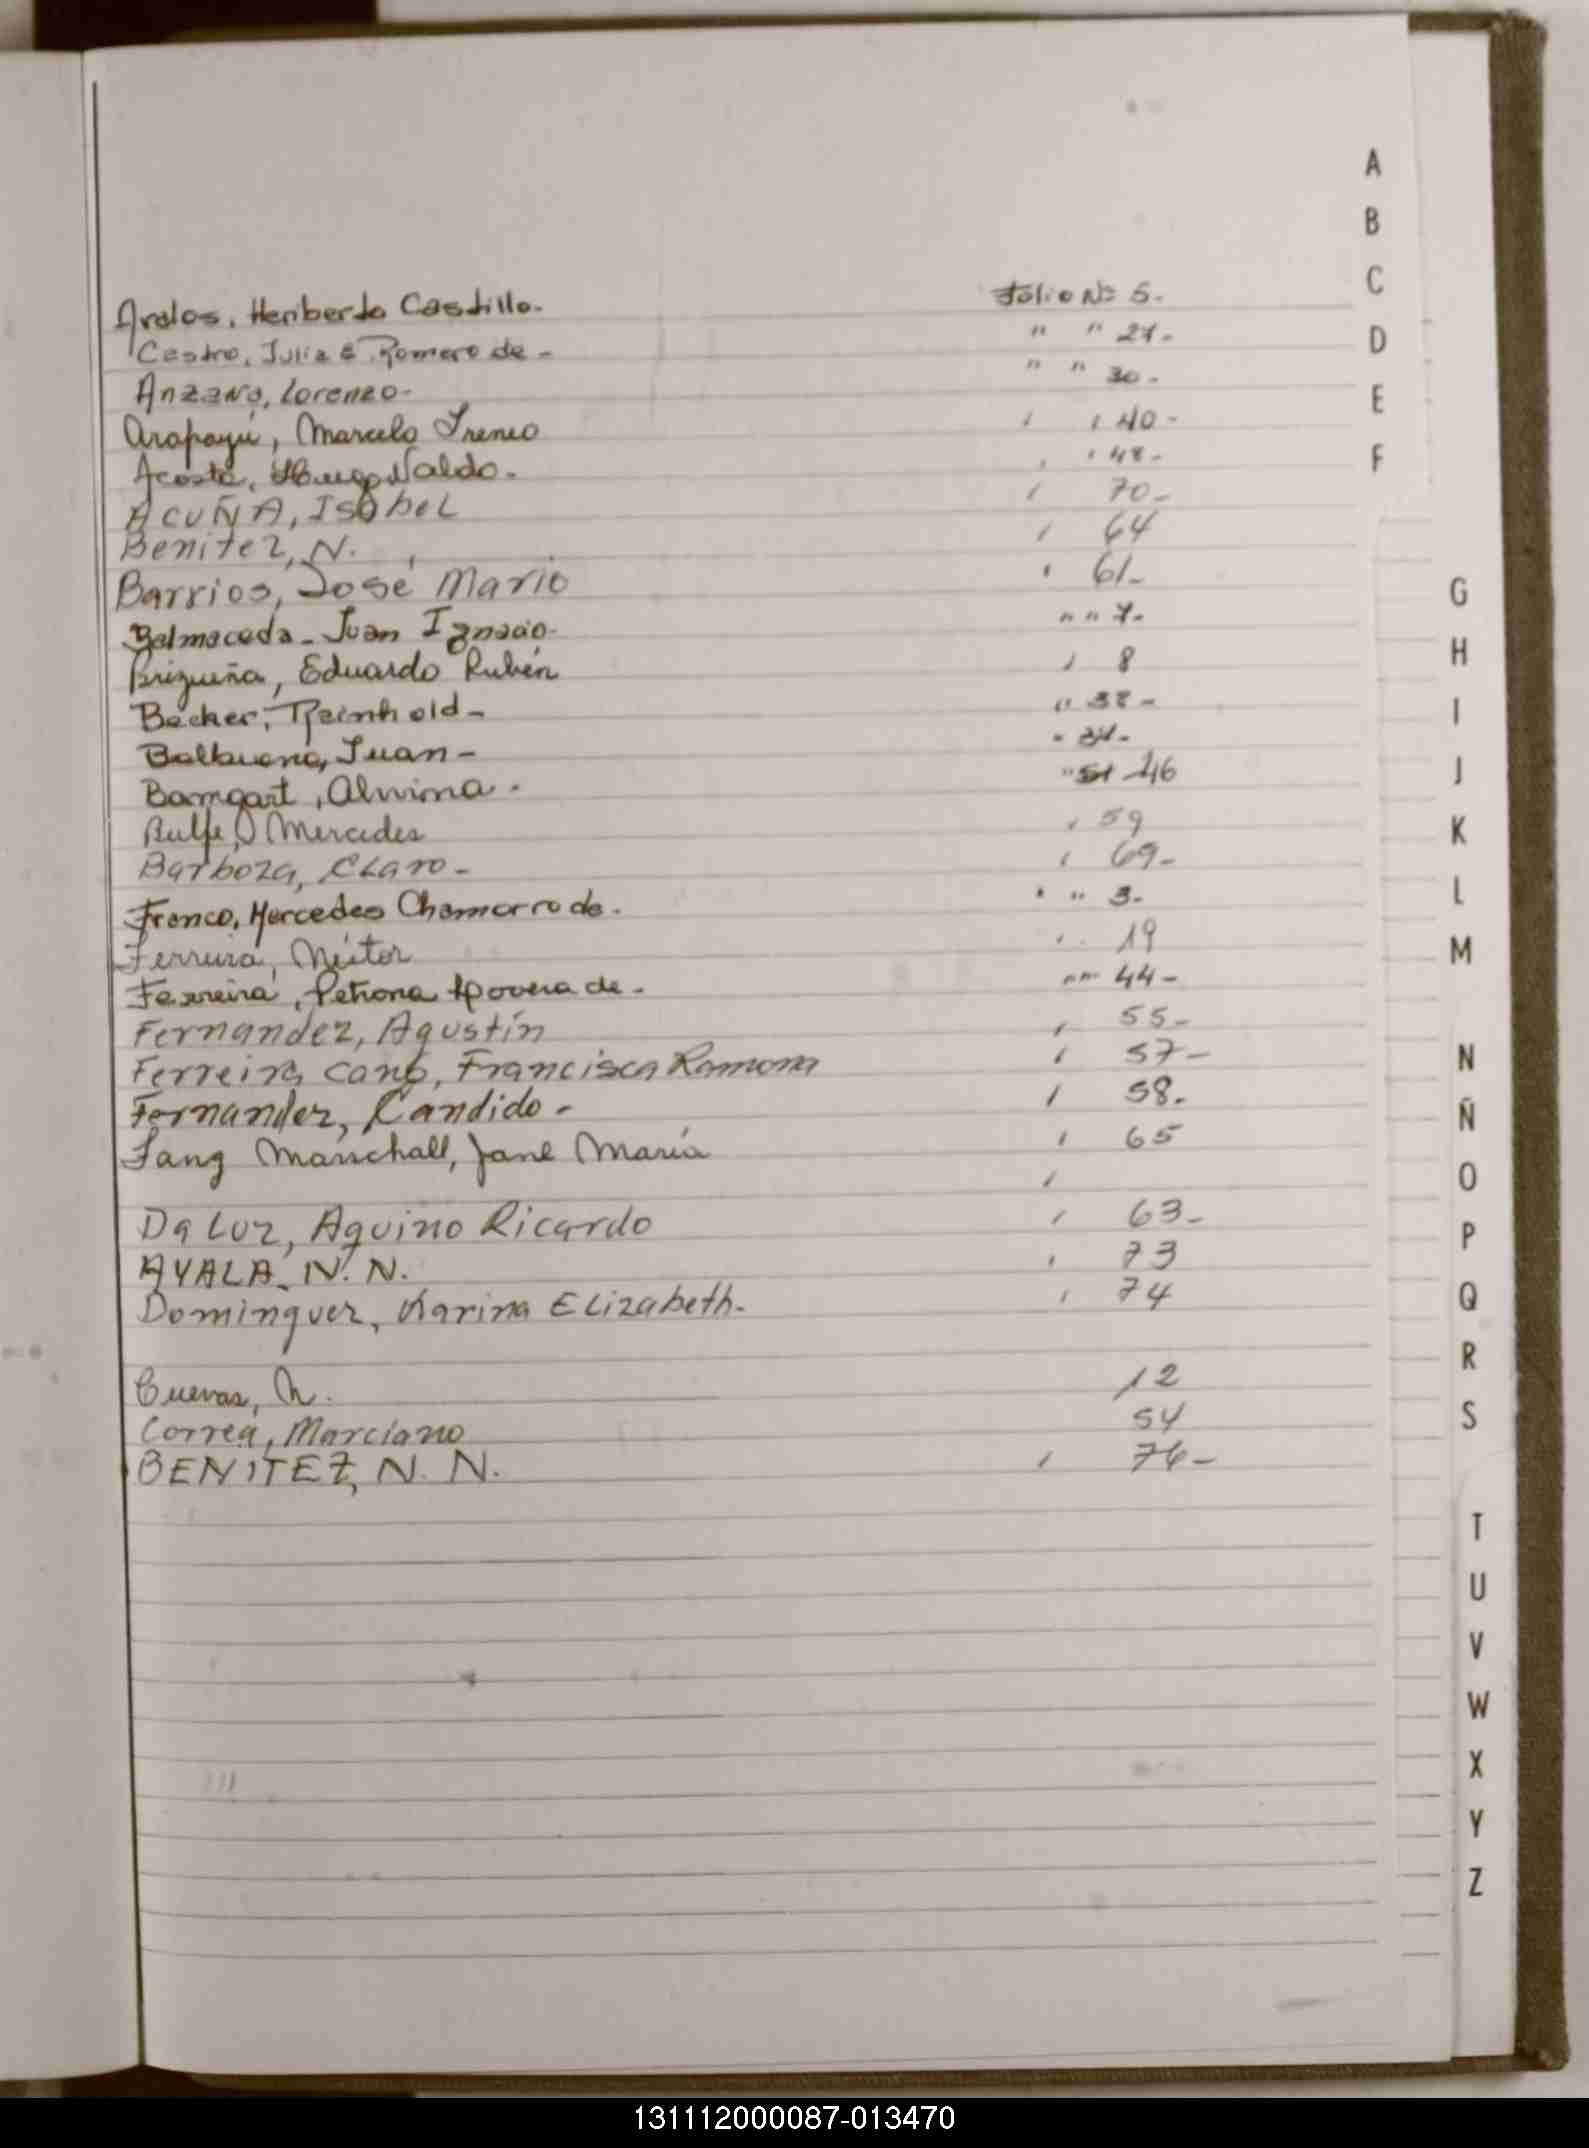 Avalos, Heriberto Castillo. Folio Nº 5.
Castro, Julia E. Romero de - " " 27.
Anzano, Lorenzo - " " 30.
Arapayú, Marcelo Ireneo " " 40 -
Acosta, Hugo Valdo. " " 48 -
ACUÑA, ISabeL " 70 -
Benitez, N. " 64
Barrios, José Mario " 61 -
Balmaceda - Juan Ignacio - " " 7.
Brizueña, Eduardo Rubén " 8
Becker, Reinhold - " 38 -
Balbuena, Juan - " 34 -
Bamgart, Alwina. " 51 46
Mercedes " 59
Barboza, CLaro - " 69 -
Franco, Mercedes Chamorro de. " " 3.
Ferreira, Néstor " 19
Ferreira, Petrona de. " " 44 -
Fernandez, Agustín " 55 -
Ferreira Cano, Francisca Ramona " 57 -
Fernandez, Candido - " 58.
Fang Marschall, Jane María " 65
"
Da Luz, Aquino Ricardo " 63 -
AYALA, N. N. " 73
Dominguez, Karina ELizabeth. " 74
Cuevas, N. 12
Correa, Marciano 54
BENITEZ, N. N. " 76 -
A
B
C
D
E
F
G
H
I
J
K
L
M
N
Ñ
O
P
Q
R
S
T
U
V
W
X
Y
Z
131112000087-013470